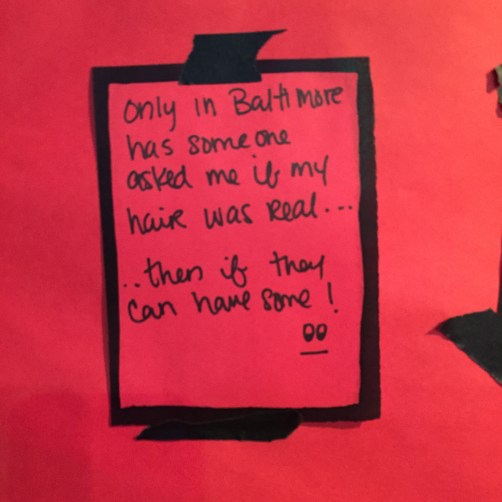 only in Baltimore
has someone
asked me if my
hair was real...
..then if they
can have some!